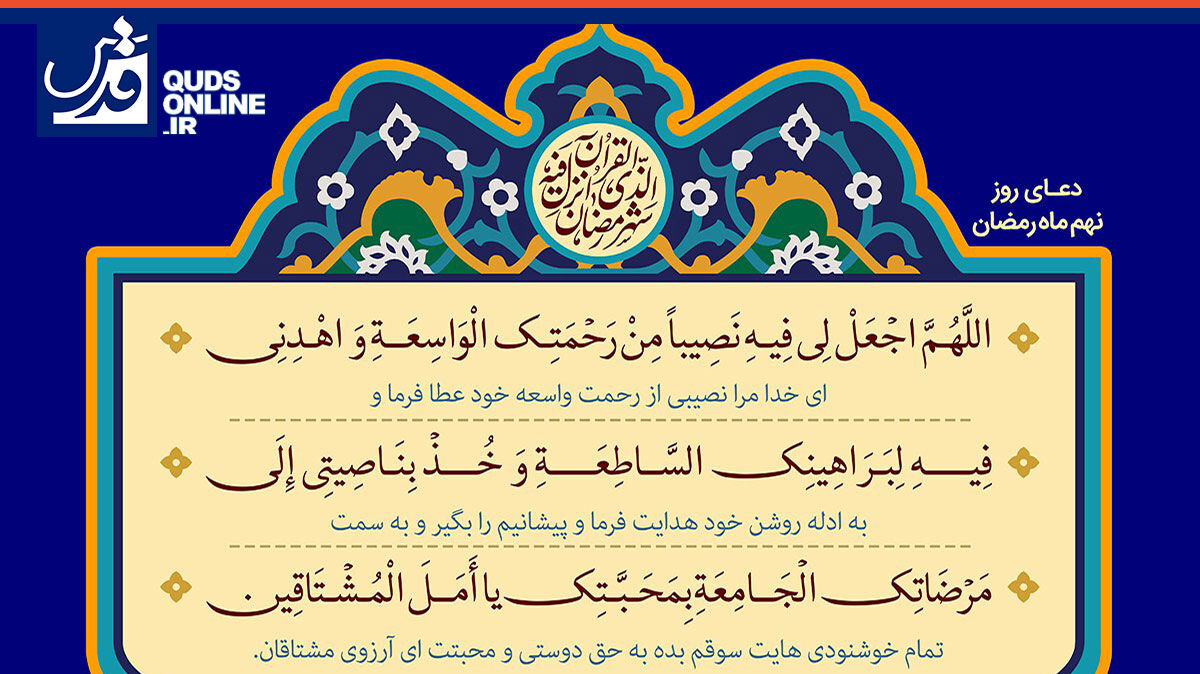 قدس
QUDS
ONLINE
.IR
شهر رمضان الذی انزل فیه القرآن
دعـای روز
نهم ماه رمضان
اللَّهُمَّ اجْعَلْ لِی فِیهِ نَصِیباً مِنْ رَحْمَتِک الْوَاسِعَةِ وَ اهْدِنِی
ای خدا مرا نصیبی از رحمت واسعه خود عطا فرما و
فِیهِ لِبَرَاهِینِک السَّاطِعَةِ وَ خُذْ بِنَاصِیتِی إِلَی
به ادله روشن خود هدایت فرما و پیشانیم را بگیر و به سمت
مَرْضَاتِک الْجَامِعَةِ بِمَحَبَّتِک یا أَمَلَ الْمُشْتَاقِین.
تمام خوشنودی هایت سوقم بده به حق دوستی و محبتت ای آرزوی مشتاقان.